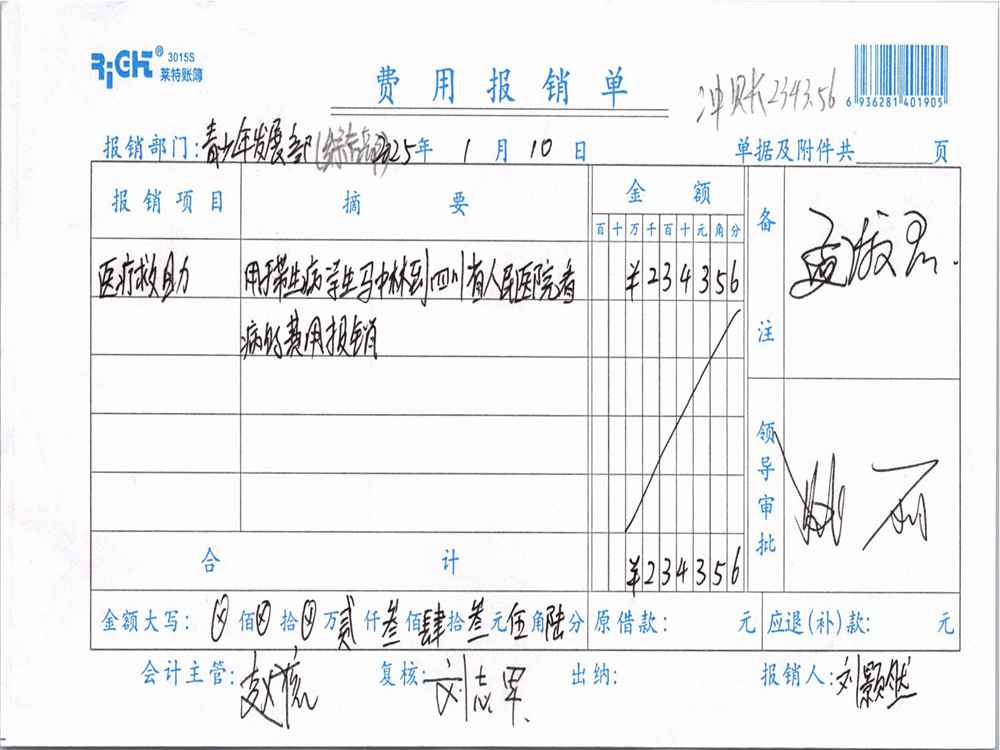 RiGHT® 3015S
莱特账簿
费用报销单
冲账2343.56
6 936281 401905
报销部门:青少年发展部 2025年 1月10日 单据及附件共 页
报销项目 摘要 金额 备注
百十万千百十元角分
医疗救助 用于带生病学生马中林到四川省人民医院看 ¥234356
病的费用报销
领导审批
合计 ¥234356
金额大写: ⊗佰⊗拾⊗万贰仟叁佰肆拾叁元伍角陆分 原借款: 元 应退(补)款: 元
会计主管: 复核:刘志军 出纳: 报销人:刘颢然